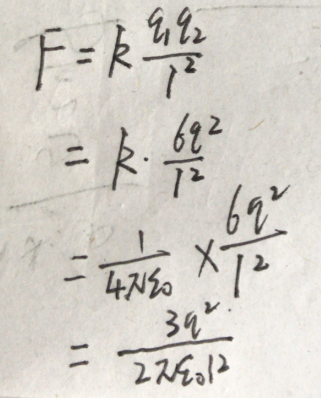 F = k \frac{q_1 q_2}{l^2}
= k \cdot \frac{6q^2}{l^2}
= \frac{1}{4\pi\varepsilon_0} \times \frac{6q^2}{l^2}
= \frac{3q^2}{2\pi\varepsilon_0 l^2}